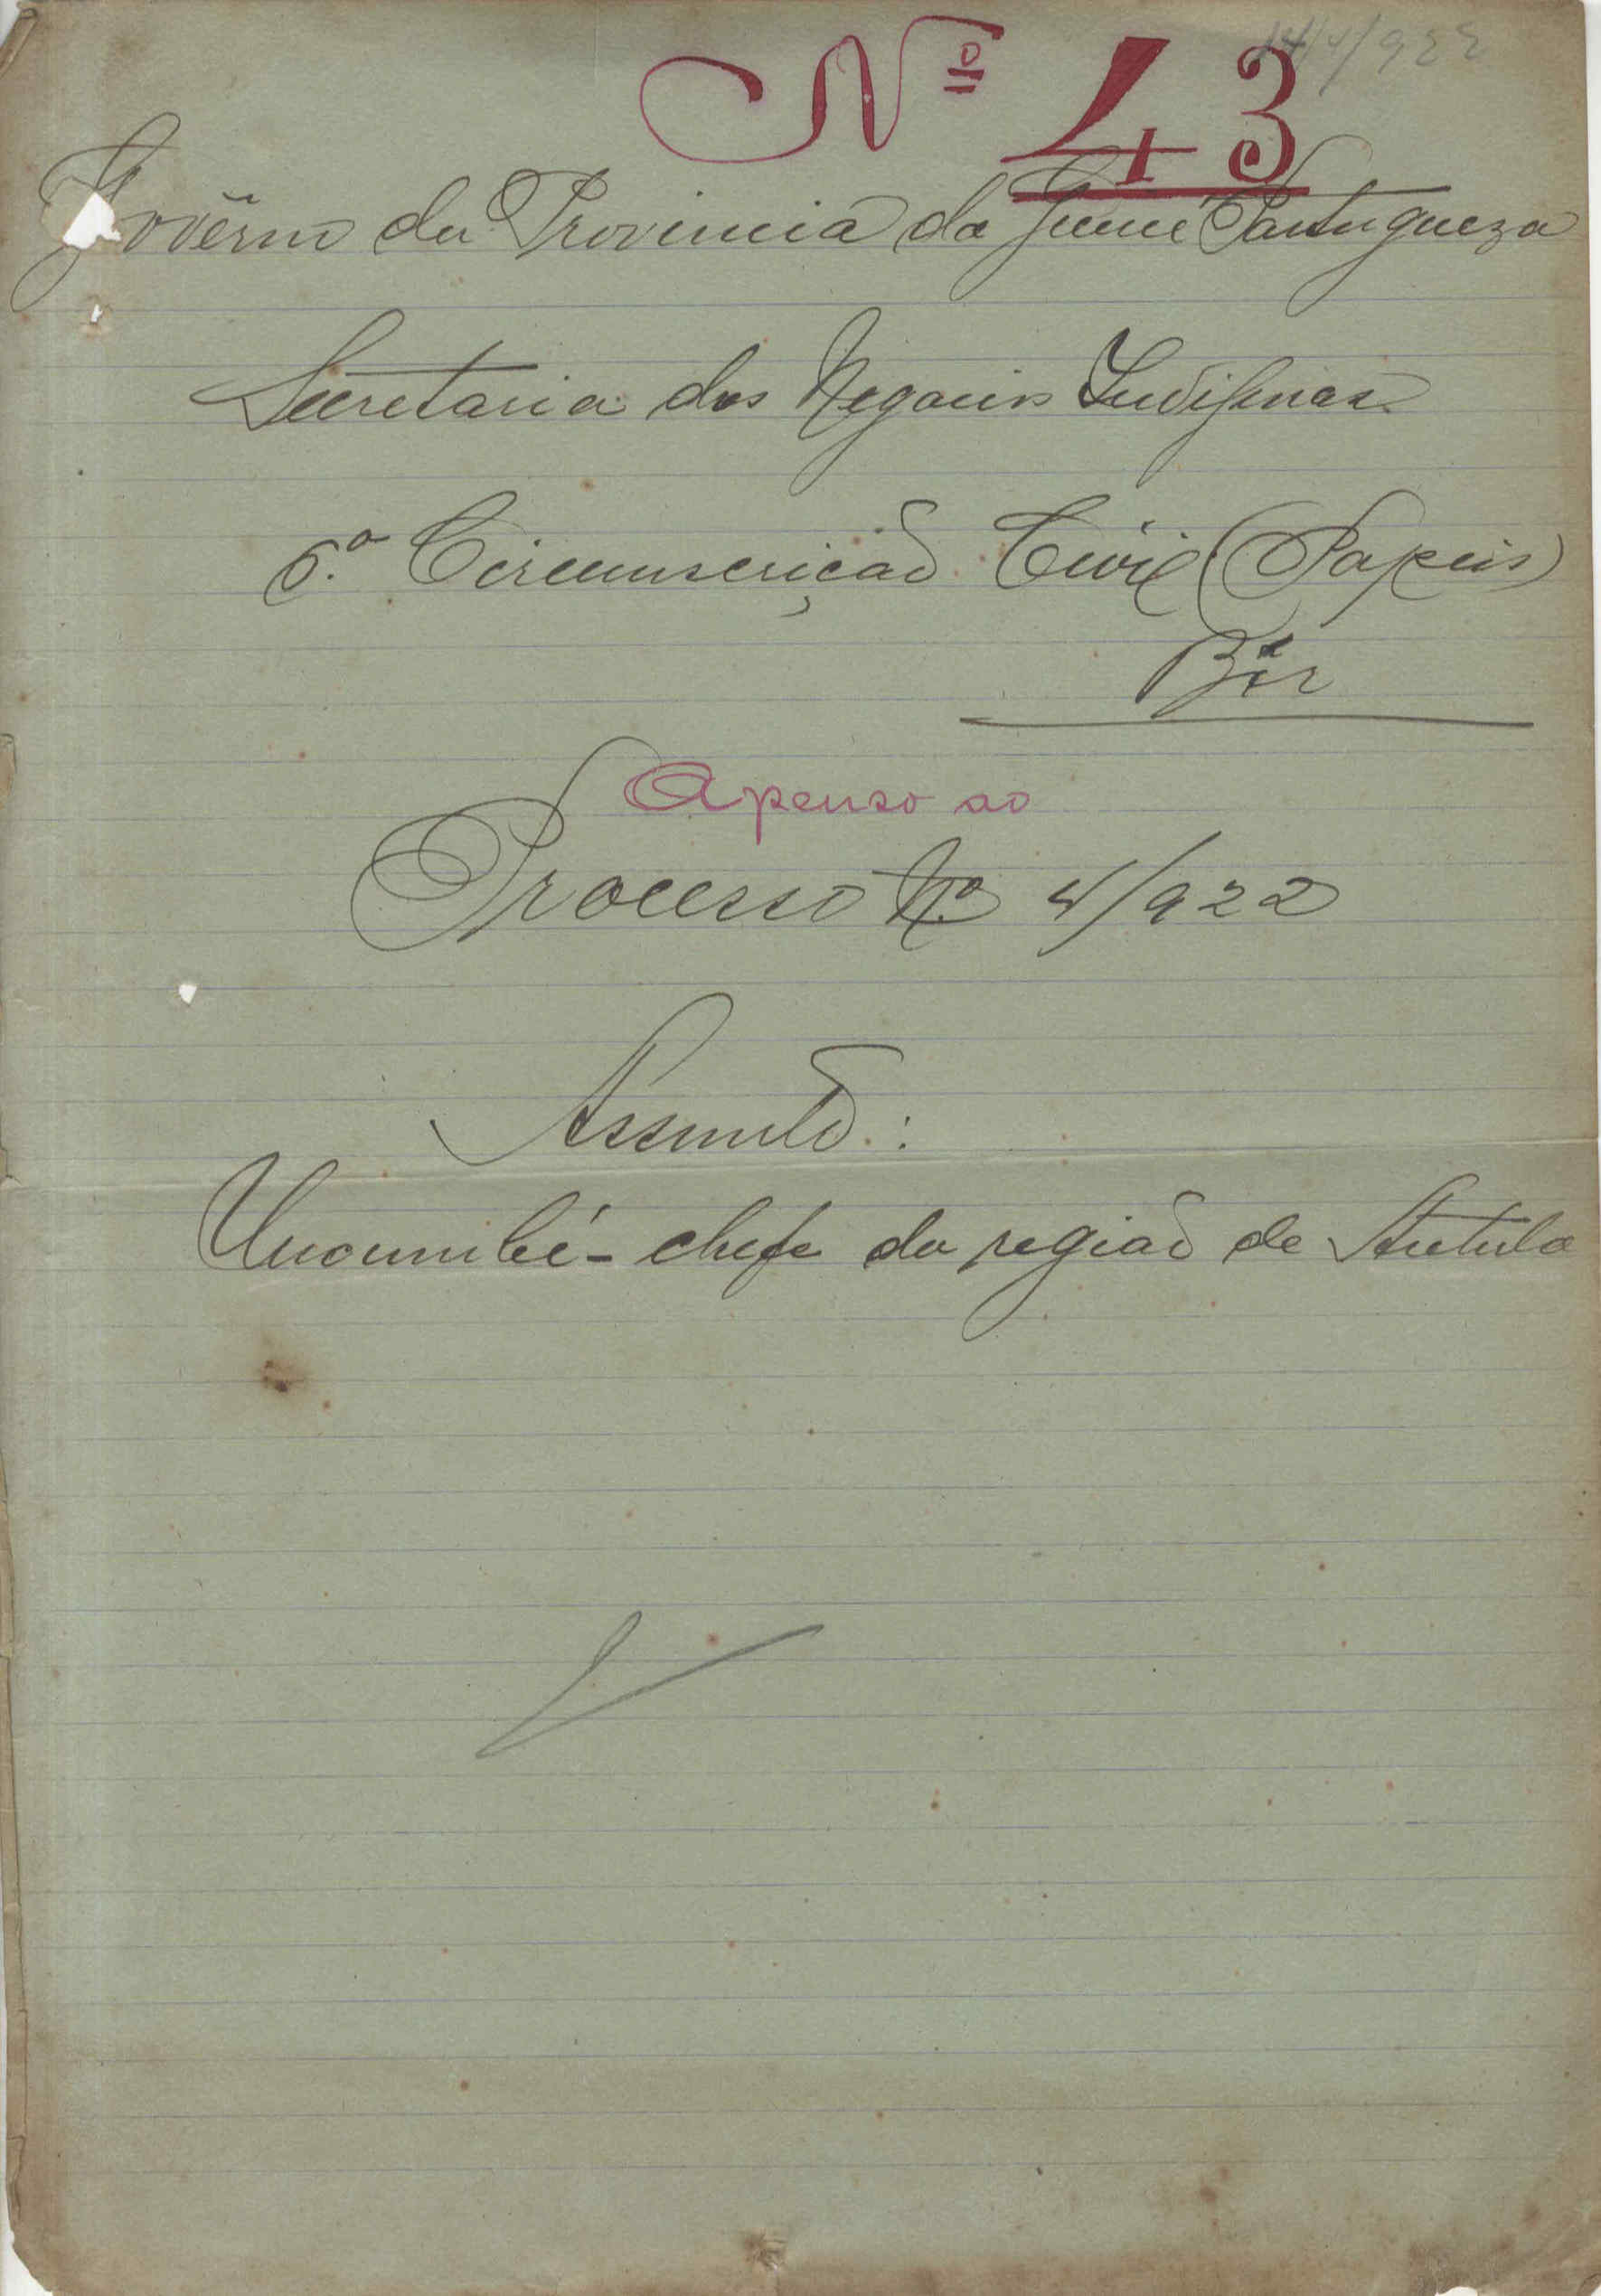 Nº 43
Govêrno da Provincia da Guiné Portugueza
Secretaria dos Negocios Indigenas
6.ª Circunscrição Civil (Papeis)
Bôr
Apenso ao
Processo Nº 4/922
Assunto:
chefe da região de Antula